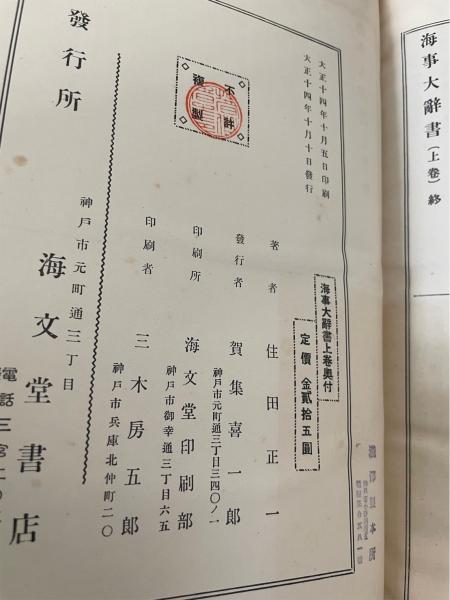 海事大辭書（上卷）終
海事大辭書上卷奧付
定價 金貳拾五圓
大正十四年十月五日印刷
大正十四年十月十日發行
不許
複製
著者 住田正一
發行者 賀集喜一郎
神戸市元町通三丁目三四〇ノ一
印刷所 海文堂印刷部
神戸市御幸通三丁目六五
印刷者 三木房五郎
神戸市兵庫北仲町二〇
發行所
神戸市元町通三丁目
海文堂書店
電話三宮